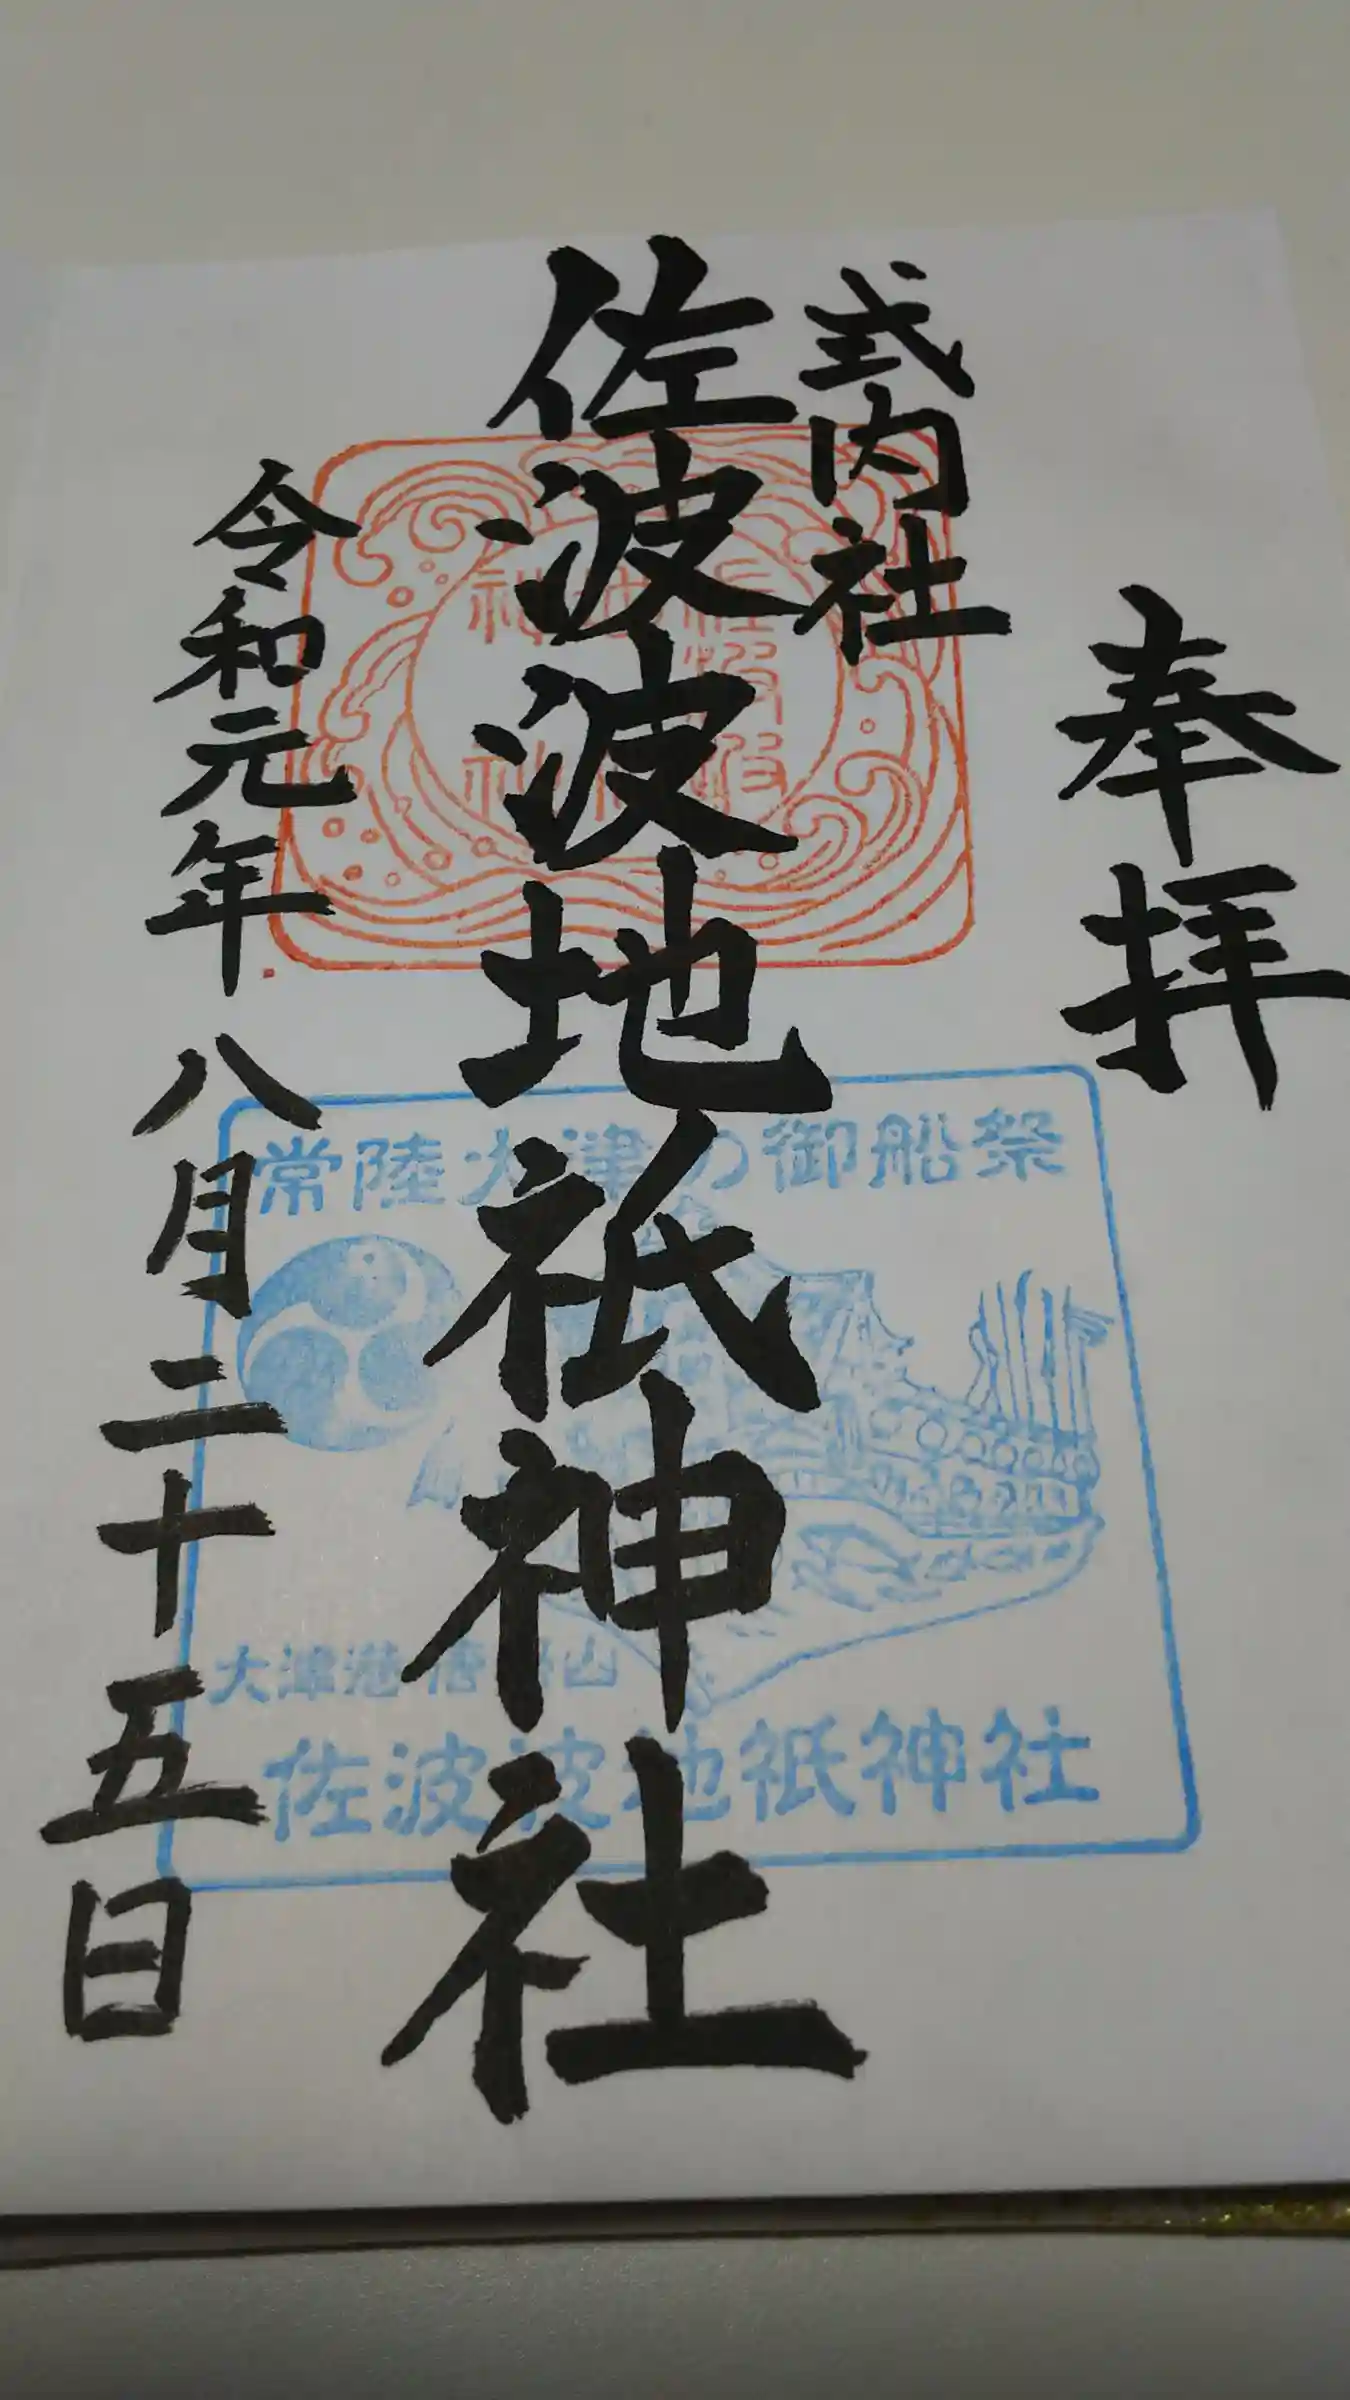 奉拝
式内社
佐波波地祇神社
令和元年八月二十五日
常陸大津の御船祭
大津港唐帰山
佐波波地祇神社